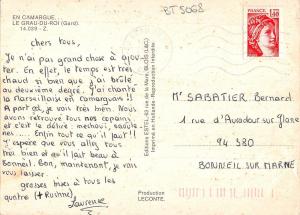 EN CAMARGUE...
LE GRAU-DU-ROI (Gard).
14.039 - Z.
BT 5068
chers tous,
Je n'ai pas grand chose à ajou-
ter. En effet, le temps est très
chaud si bien que j'ai brûlé
au deuxième degré. J'ai chanté
la Marseillaise en camarguais !!
A part ça, je vais très bien. Nous
avons retrouvé tous nos copains
et c'est le délire : méchoui, saoule-
ries ... Enfin tout ce qu'il faut !!
J'espère que vous allez tous
très bien et qu'il fait beau à
Bonneuil. Bon, maintenant, je vais
vous laisser.
grosses bises à tous les
quatre (+ Rushne)
Laurence
Editions ESTEL
Imprimé en Hollande - Reproduction interdite
Production
LECONTE.
REPUBLIQUE FRANÇAISE
1,40
Mr SABATIER Bernard
1 rue d'Auvadour sur Glane
94 380
BONNEUIL SUR MARNE